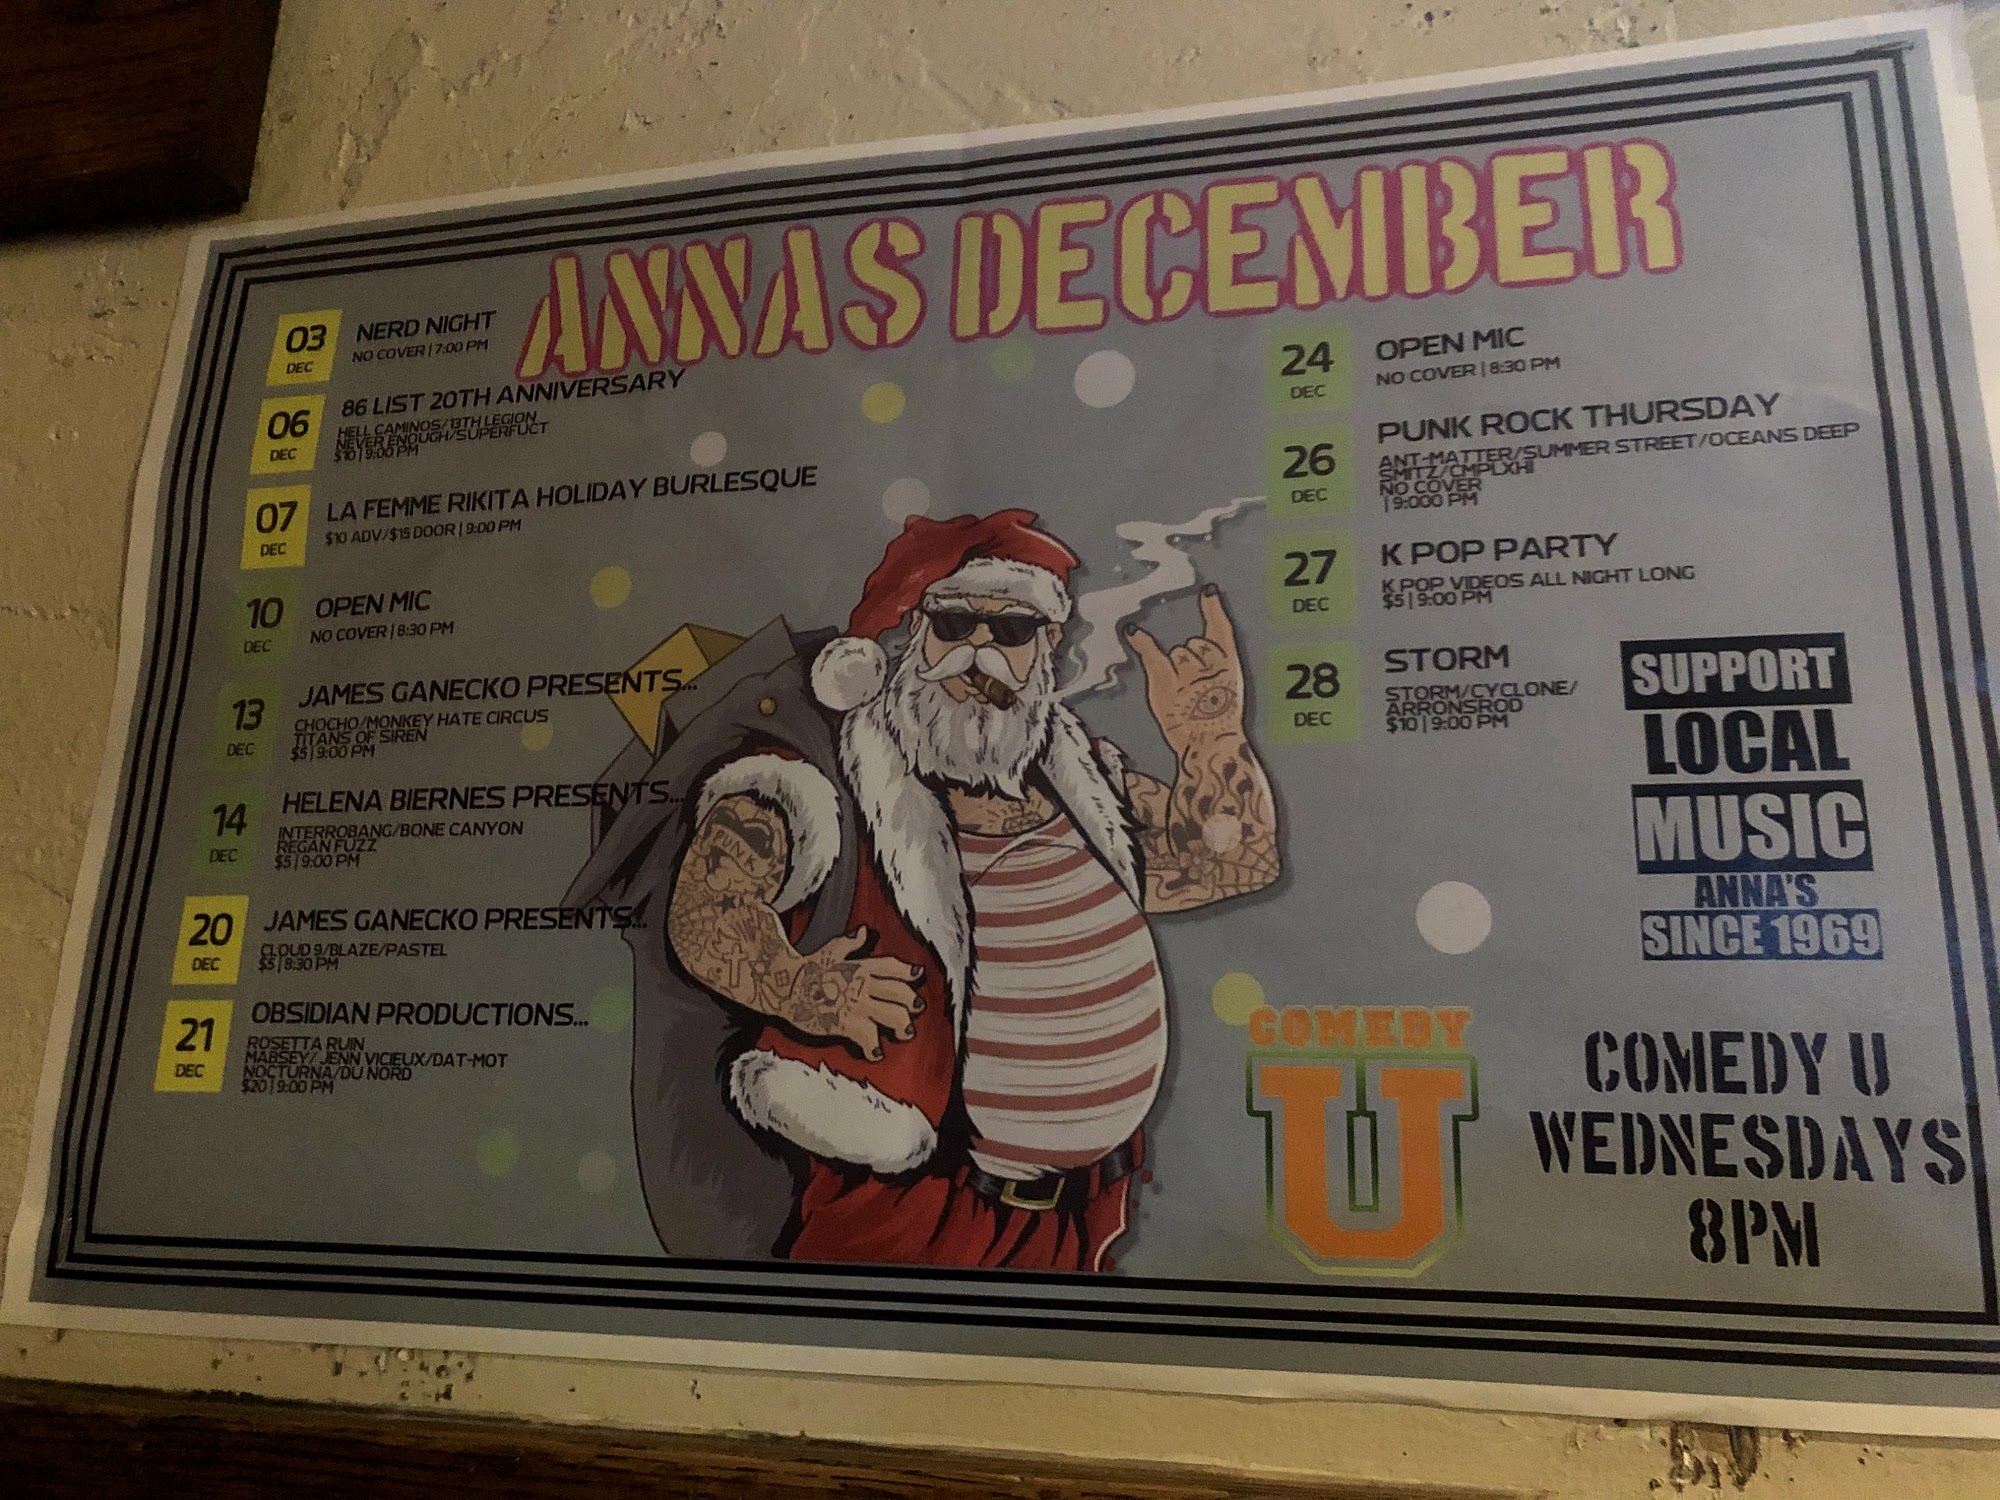 ANNAS DECEMBER
03
DEC
NERD NIGHT
NO COVER | 7:00 PM
06
DEC
86 LIST 20TH ANNIVERSARY
HELL CAMINOS/13TH LEGION
NEVER ENOUGH/SUPERFUCT
$10 | 9:00 PM
07
DEC
LA FEMME RIKITA HOLIDAY BURLESQUE
$10 ADV/$15 DOOR | 9:00 PM
10
DEC
OPEN MIC
NO COVER | 8:30 PM
13
DEC
JAMES GANECKO PRESENTS...
CHOCHO/MONKEY HATE CIRCUS
TITANS OF SIREN
$5 | 9:00 PM
14
DEC
HELENA BIERNES PRESENTS...
INTERROBANG/BONE CANYON
REGAN FUZZ
$5 | 9:00 PM
20
DEC
JAMES GANECKO PRESENTS...
CLOUD 9/BLAZE/PASTEL
$5 | 8:30 PM
21
DEC
OBSIDIAN PRODUCTIONS...
ROSETTA RUIN
MABSEY/ JENN VICIEUX/DAT-MOT
NOCTURNA/DU NORD
$20 | 9:00 PM
PUNK
24
DEC
OPEN MIC
NO COVER | 8:30 PM
26
DEC
PUNK ROCK THURSDAY
ANT-MATTER/SUMMER STREET/OCEANS DEEP
SMITZ/CMPLXHI
NO COVER
| 9:000 PM
27
DEC
K POP PARTY
K POP VIDEOS ALL NIGHT LONG
$5 | 9:00 PM
28
DEC
STORM
STORM/CYCLONE/
ARRONSROD
$10 | 9:00 PM
SUPPORT
LOCAL
MUSIC
ANNA'S
SINCE 1969
COMEDY
U
COMEDY U
WEDNESDAYS
8PM